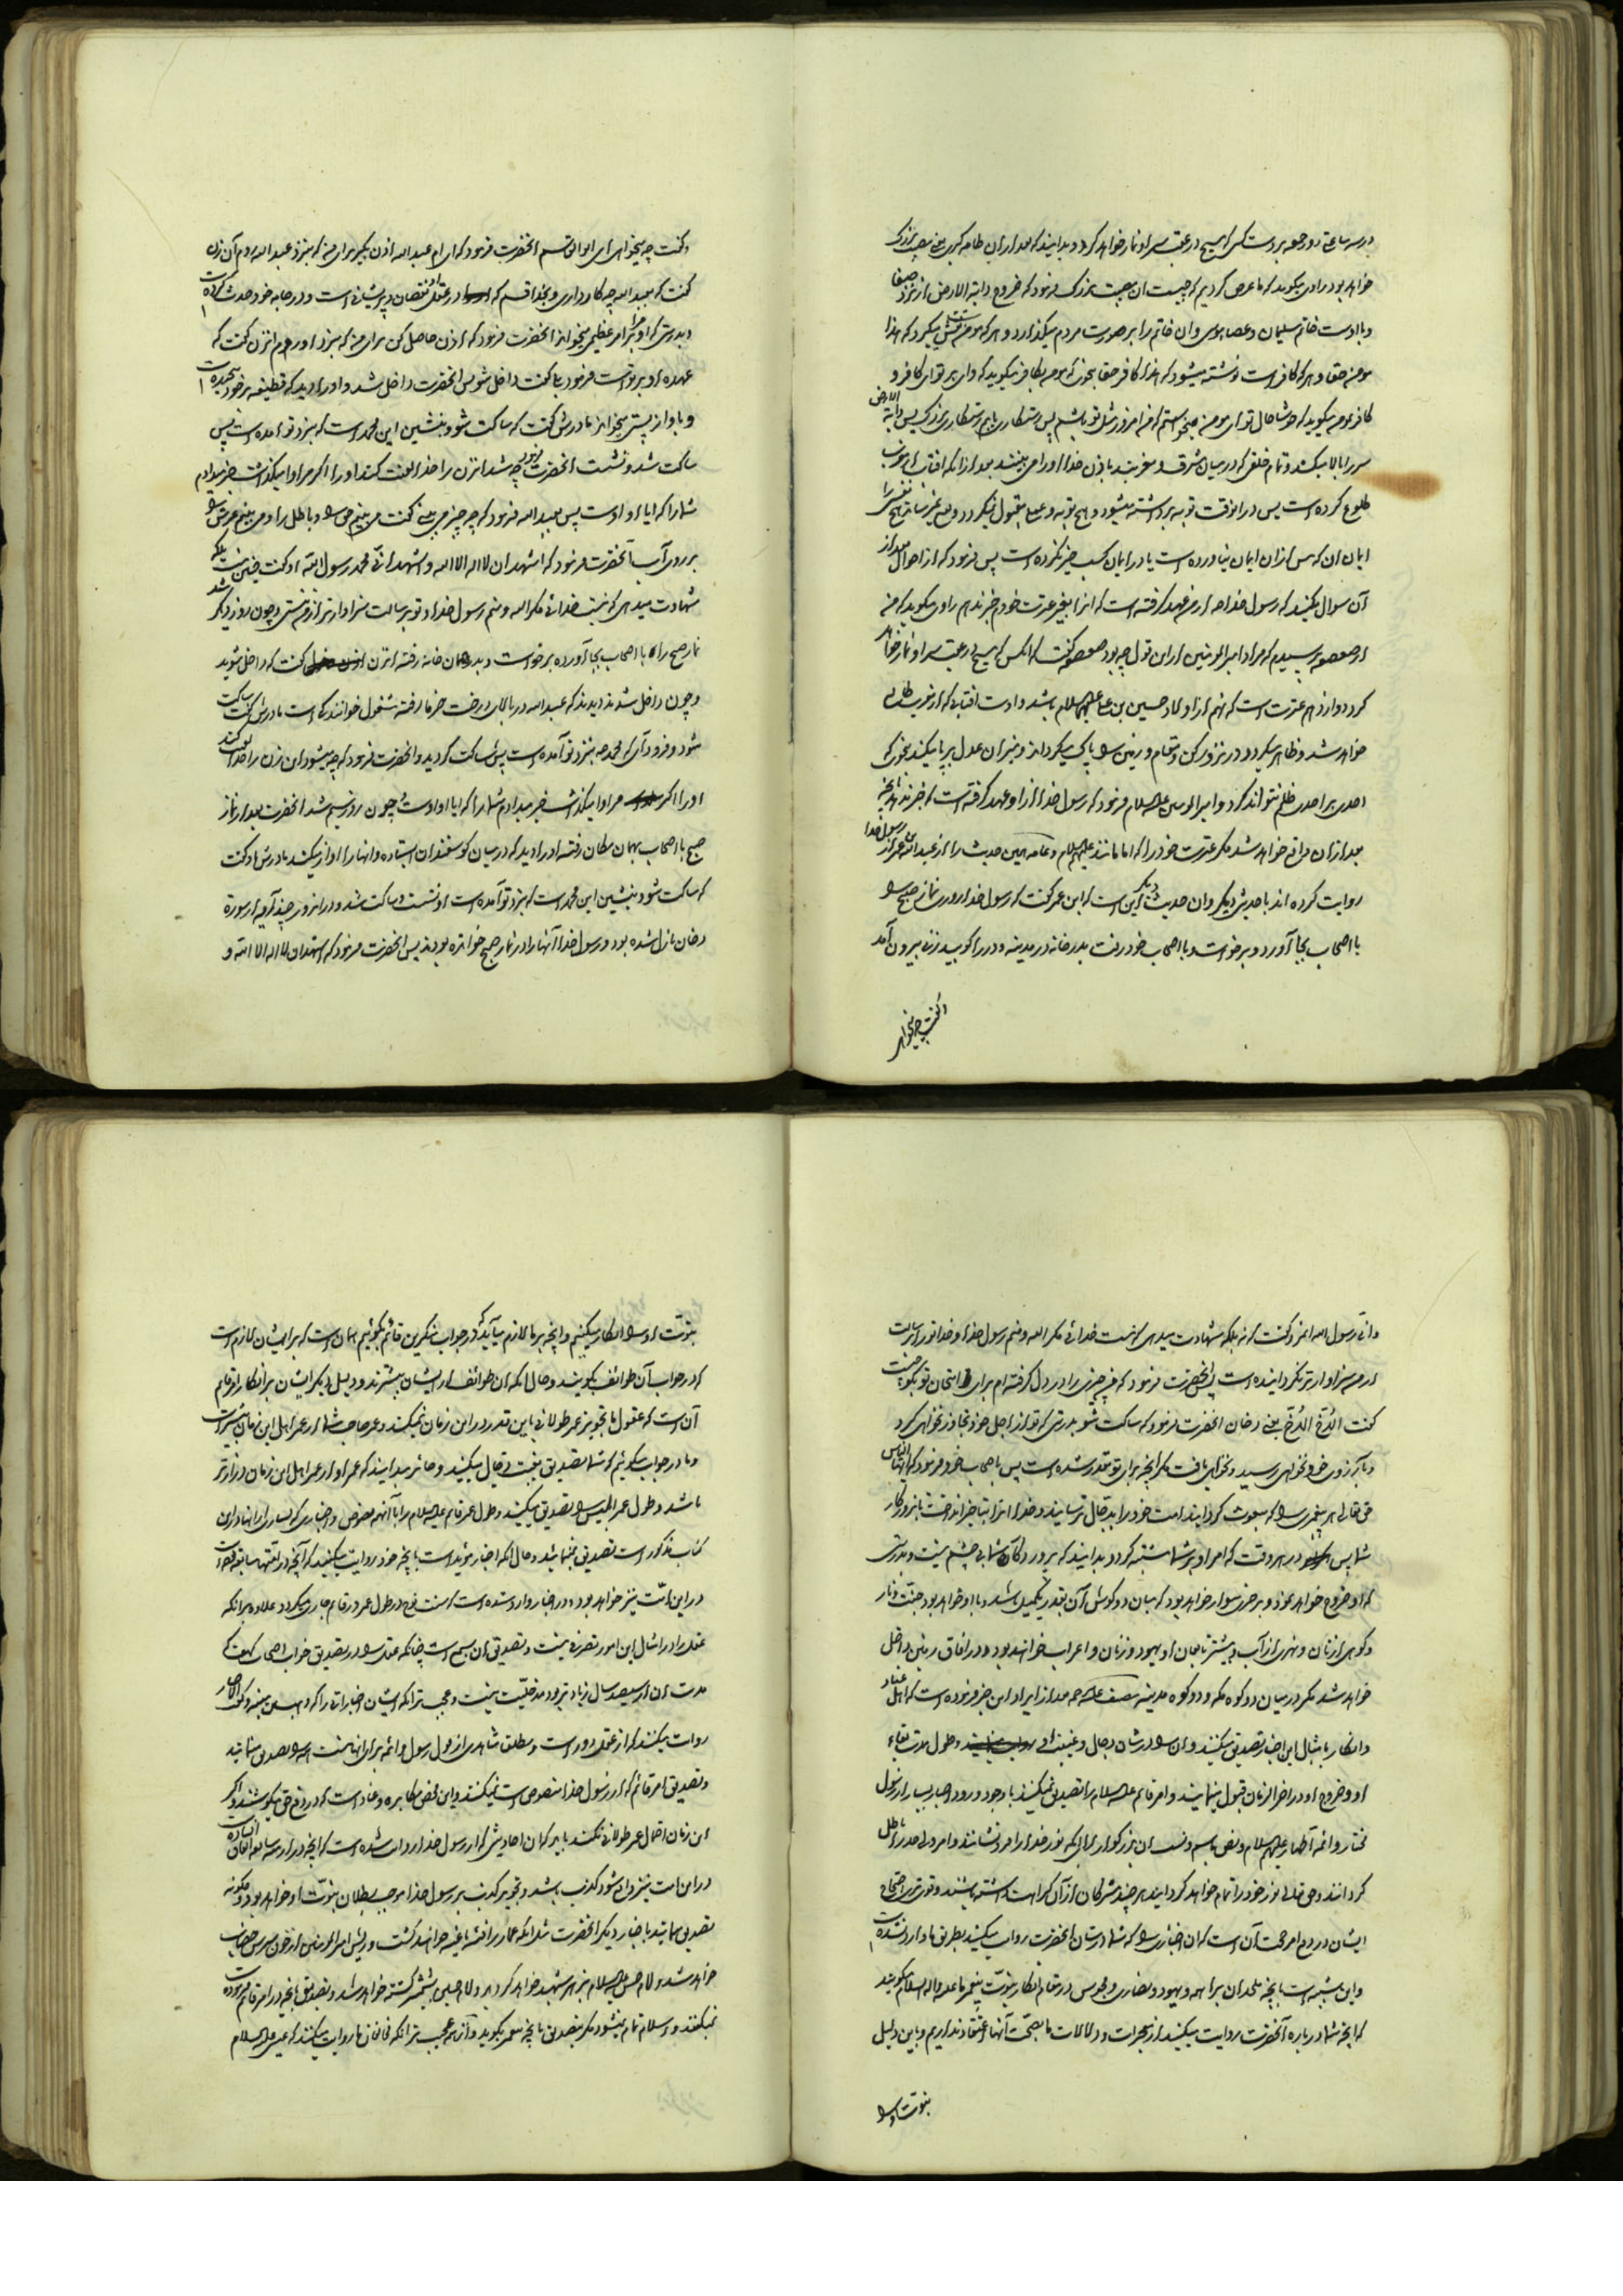 در سه ساعت از روز جمعه بر دست کسی که مسیح در عقب سر او نماز خواهد کرد و بدانید که بعد از آن طامه کبری یعنی مصیبت بزرگ
خواهد بود راوی میگوید که ما عرض کردیم که چیست آن مصیبت بزرگ فرمود که خروج دابة الارض از نزد صفا
و با اوست خاتم سلیمان و عصای موسی و آن خاتم را بر صورت مردم میگذارد و هر که مومنست نقش میگیرد که هذا
مومن حقا و هر که کافر است نوشته میشود که هذا کافر حقا بحدی که مومن بکافر میگوید که وای بر تو ای کافر و
کافر بمومن میگوید که خوشا حال تو ای مومن میخواستم که من امروز مثل تو باشم پس رستگاری یابم رستگاری بزرگ پس دابة الارض
سر را بالا میکند و تمام خلق که در میان مشرق و مغربند باذن خدا او را می بینند بعد از آنکه آفتاب از مغرب
طلوع کرده است پس در آنوقت توبه برداشته میشود و هیچ توبه و عمل مقبول نمیگردد و نفع نمیرساند هیچ نفس را
ایمان آن که پس از آن ایمان نیاورده است یا در ایمان کسب خیر نکرده است پس فرمود که از احوال بعد از
آن سوال مکنید که رسول خدا ص از من عهد گرفته است که آنرا بغیر عترت خود خبر ندهم راوی میگوید که من
از صعصعه پرسیدم که مراد امیر المومنین از این قول چه بود صعصعه گفت که آنکس که مسیح در عقب سر او نماز خواهد
کرد دوازدهم عترت است که نهم از اولاد حسین بن علی علیهم السلام باشد و اوست آفتابی که از مغرب طالع
خواهد شد و ظاهر میگردد در نزد رکن و مقام و زمین را پاک میگرداند و میزان عدل بر پا میکند بحدی که
احدی بر احدی ظلم نتواند کرد و امیر المومنین علیه السلام فرمود که رسول خدا از او عهد گرفته است که خبر ندهد بآنچه
بعد از آن واقع خواهد شد مگر عترت خود را که امامانند علیهم السلام و عامه همین حدیث را از عبدالله بن عمر از رسول خدا
روایت کرده اند با حدیثی دیگر و آن حدیث دیگر این است که ابن عمر گفت که رسول خدا روزی نماز صبح را
با اصحاب بجا آورد و برخواست و با اصحاب خود رفت بدر خانه در مدینه و در را کوبید زنی بیرون آمد
و گفت چه میخواهی
و گفت چه میخواهی ای ابوالقاسم آنحضرت فرمود که ای ام عبدالله اذن بگیر برای من که بنزد عبدالله روم آن زن
گفت که بعبدالله چه کار داری و بخدا قسم که در عقل او نقصان و پریشانی است و در جامه خود حدث کرده است
و بدرستی که او مرا بر امر عظیمی میخواند آنحضرت فرمود که اذن حاصل کن برای من که بنزد او روم آن زن گفت که
عهده او بر تو است فرمود بلی گفت داخل شو پس آنحضرت داخل شد و او را دید که قطیفه بر خود پیچیده است
و باواز پستی میخواند مادرش گفت که ساکت شو و بنشین این محمد است که بنزد تو آمده است پس
ساکت شد و نشست آنحضرت فرمود چه شد این زن را خدا لعنت کند او را اگر مرا وا میگذاشت خبر میدادم
شما را که ایا او اوست پس بعبدالله فرمود که چه چیز می بینی گفت می بینم حق را و باطل را و می بینم عرشی را
بر روی آب آنحضرت فرمود که اشهد ان لا اله الا الله و اشهد انی محمد رسول الله او گفت چنین نیست بلکه
شهادت میدهی که نیست خدائی مگر الله و منم رسول خدا و تو برسالت سزاوارتر از من نیستی و چون روز دیگر شد
نماز صبح را با اصحاب بجا آورده برخواست و بدر همان خانه رفته آن زن گفت که داخل شوید
و چون داخل شدند دیدند که عبدالله در بالای درخت خرما رفته مشغول خوانندگی است مادرش گفت ساکت
شو و فرود آی که محمد ص بنزد تو آمده است پس ساکت گردید و آنحضرت فرمود که چه میشود این زن را خدا لعنت کند
او را اگر مرا وا میگذاشت خبر میدادم شما را که ایا او اوست و چون روز سیم شد آنحضرت بعد از نماز
صبح با اصحاب بهمان مکان رفته او را دید که در میان گوسفندان ایستاده و آنها را آواز میکند مادرش باو گفت
که ساکت شو و بنشین این محمد است که بنزد تو آمده است او نشست و ساکت شد و در آنروز چند آیه از سوره
دخان نازل شده بود و رسول خدا آنها را در نماز صبح خوانده بودند پس آنحضرت فرمود که اشهد ان لا اله الا الله و
و انی رسول الله آنمرد گفت که نه بلکه شهادت میدهی که نیست خدائی مگر الله و منم رسول خدا و خدا تو را برسالت
از من سزاوارتر نگردانیده است پس آنحضرت فرمود که من چیزی را در دل گرفته ام برای امتحان تو بگو چیست
گفت الدخ الدخ یعنی دخان آنحضرت فرمود که ساکت شو بدرستی که تو از اجل خود تجاوز نخواهی کرد
و بآرزوی خود نخواهی رسید و نخواهی یافت مگر آنچه برای تو مقدر شده است پس باصحاب خود فرمود که ایها الناس
حق تعالی هر پیغمبری را که مبعوث گردانید امت خود را بدجال ترسانید و خدا آنرا بتاخیر انداخت تا بروزگار
شما پس در هر وقت که امر او بر شما مشتبه گردد بدانید که پروردگار شما یک چشم نیست و بدرستی
که او خروج خواهد نمود و بر خری سوار خواهد بود که میان دو گوش آن بقدر یکمیل باشد و با او خواهد بود جنت و نار
و کوهی از نان و نهری از آب و بیشتر تابعان او یهود و زنان و اعراب خواهند بود و در آفاق زمین داخل
خواهد شد مگر در میان دو کوه مکه و دو کوه مدینه مصنف علیه الرحمه بعد از ایراد این خبر فرموده است که اهل عناد
و انکار بامثال این اخبار تصدیق میکنند و آن را در شان دجال و غیبت او و طول مدت بقاء
او و خروج او در آخر الزمان قبول مینمایند و امر قائم علیه السلام را تصدیق نمیکنند با وجود ورود اخبار بسیار از رسول
مختار و ائمه اطهار علیهم السلام و نص باسم و نسب آن بزرگوار برای آنکه نور خدا را فرو نشانند و امر ولی خدا را باطل
گردانند و حق تعالی نور خود را تمام خواهد گردانید هر چند مشرکان از آن کراهت داشته باشند و قوی ترین احتجاج
ایشان در دفع امر حجت آن است که آن اخباری را که شما در شان آنحضرت روایت میکنید بطریق ما وارد نشده است
و این شبیه است بآنچه ملحدان براهمه و یهود و نصاری و مجوس در مقام انکار نبوت پیغمبر ما علیه و اله السلام میگویند
که آنچه شما در باره آنحضرت روایت میکنید از معجزات و دلالات ما بصحت آنها اعتقاد نداریم و باین دلیل
نبوت او را
نبوت او را انکار میکنیم و آنچه بر ما لازم میآید که در جواب منکرین قائم بگوئیم همان است که بر ایشان لازم است
که در جواب آن طوائف بگویند و حال آنکه آن طوائف از ایشان بیشترند و دلیل دیگر ایشان بر انکار امر قائم
آن است که عقول ما تجویز عمر طولانی باین قدر در این زمان نمیکند و عمر صاحب شما از عمر اهل این زمان بیشتر است
و ما در جواب میگوئیم که شما تصدیق بغیبت دجال میکنید و جائز میدانید که عمر او از عمر اهل این زمان درازتر
باشد و طول عمر ابلیس را تصدیق میکنید و طول عمر قائم علیه السلام را با آنهمه نصوص و اخباری که بسیاری از آنها در این
کتاب مذکور است تصدیق نمینمائید و حال آنکه اخبار موئید است بآنچه خود روایت میکنید که آنچه در امتهای سابقه واقع شده است
در این امت نیز خواهد بود و در اخبار وارد شده است که سنت نوح در طول عمر در قائم جاری میگردد علاوه بر آنکه
عقل را در امثال این امور تصرفی نیست و تصدیق آن بسمع است چنانکه عقل را در تصدیق خواب اصحاب کهف که
مدت آن از سیصد سال زیادتر بود مدخلیت نیست و عجب تر آنکه ایشان اخباری را که
روایت میکنند که از عقل دور است و مطلقا شاهدی از قول رسول و ائمه برای آنها نیست آنها را تصدیق مینمایند
و تصدیق امر قائم که از رسول خدا منصوص است نمیکنند و این محض مکابره و عناد است که در دفع حق میکوشند و اگر
این زمان احتمال عمر طولانی نکند باید که آن احادیثی که از رسول خدا روایت شده است که آنچه در امم سابقه اتفاق افتاده
در این امت نیز واقع شود کذب باشد و تجویز کذب بر رسول خدا موجب بطلان نبوت او خواهد بود و چگونه
تصدیق مینمائید باخبار دیگر آنحضرت مثل آنکه عمار را فئه باغیه خواهند کشت و ریش امیر المومنین از خون سرش خضاب
خواهد شد و امام حسن علیه السلام بزهر شهید خواهد گردید و امام حسین بشمشیر کشته خواهد شد و تصدیق بآنچه در امر قائم فرموده است
نمیکنند و اسلام تمام نمیشود مگر بتصدیق بآنچه پیغمبر بگوید و از همه عجیب تر آنکه مخالفان ما روایت میکنند که عیسی علیه السلام